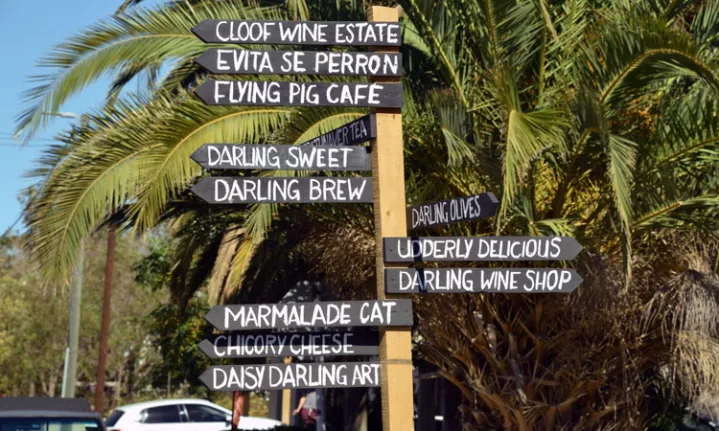 CLOOF WINE ESTATE
EVITA SE PERRON
FLYING PIG CAFÉ
TEA
DARLING SWEET
DARLING BREW
DARLING OLIVES
UDDERLY DELICIOUS
DARLING WINE SHOP
MARMALADE CAT
CHICORY CHEESE
DAISY DARLING ART